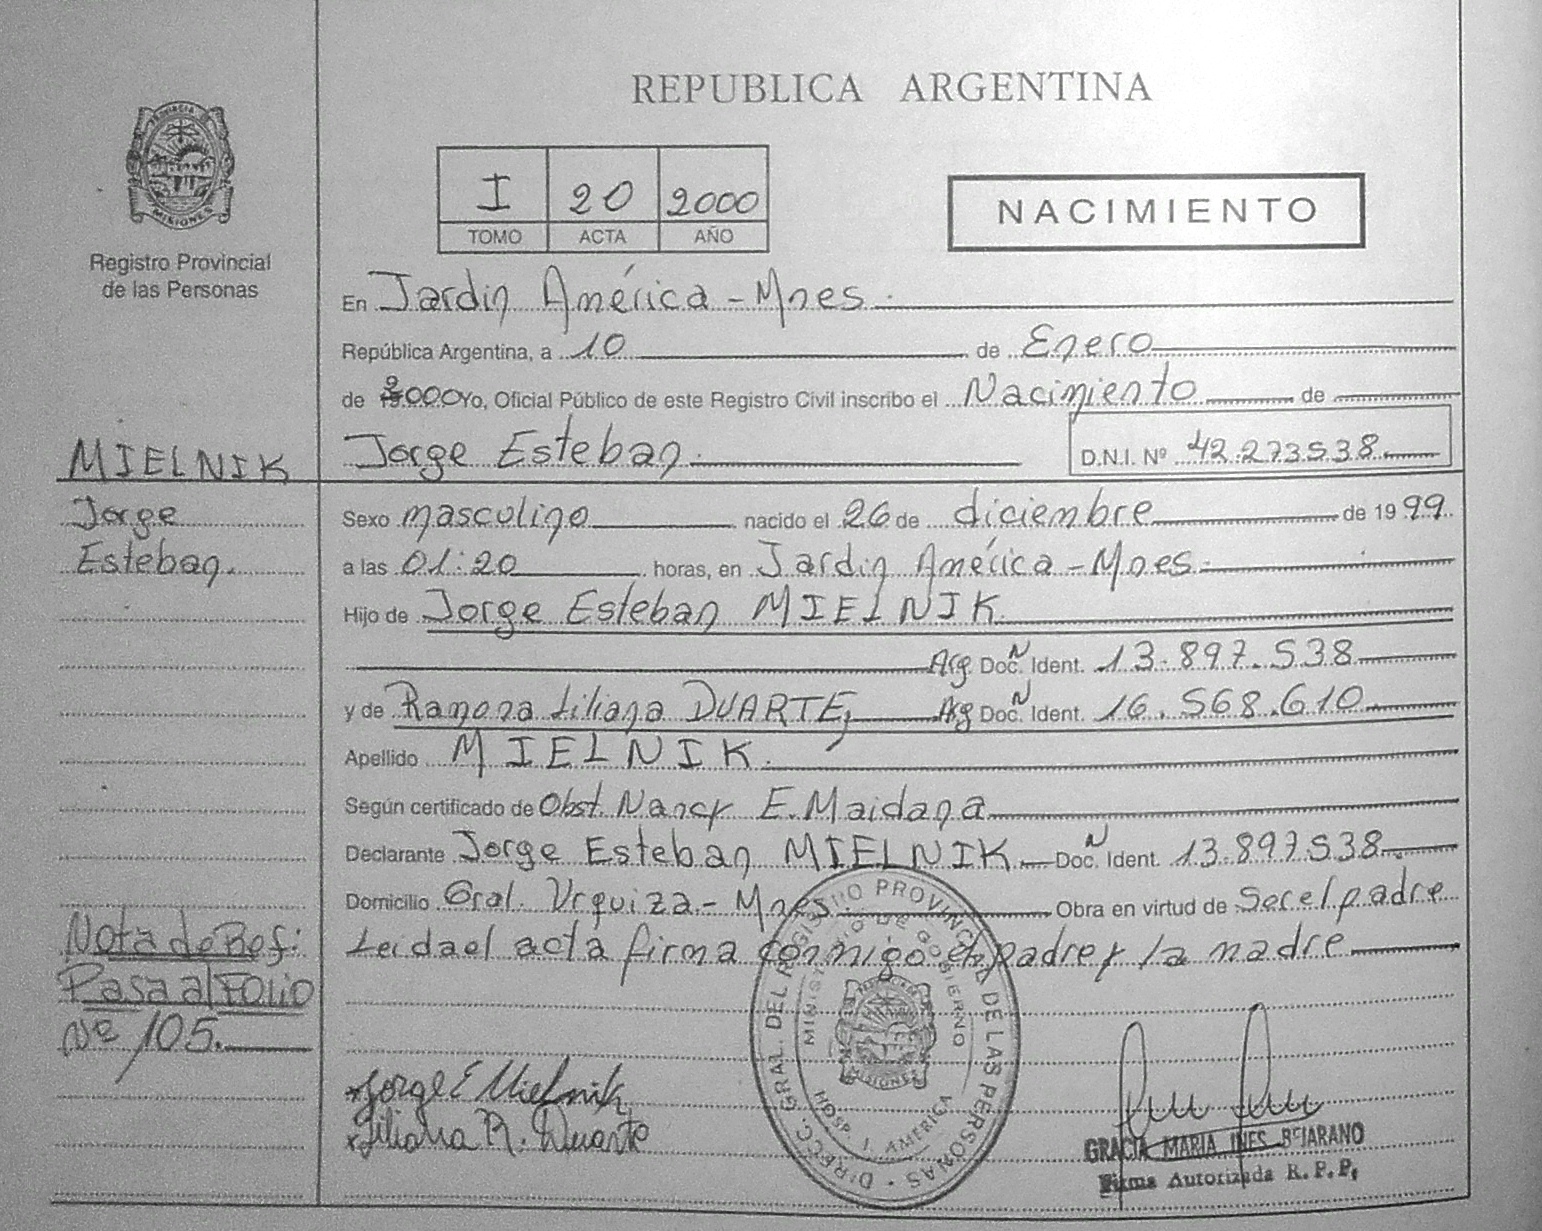 REPUBLICA ARGENTINA
PROVINCIA
MISIONES
Registro Provincial
de las Personas
I 20 2000
TOMO ACTA AÑO
NACIMIENTO
En Jardin América - Mnes.
República Argentina, a 10 de Enero
de 2000 Yo, Oficial Público de este Registro Civil inscribo el Nacimiento de
Jorge Esteban. D.N.I. Nº 42.273.538
MIELNIK
Jorge
Esteban.
Sexo masculino nacido el 26 de diciembre de 1999.
a las 01:20 horas, en Jardin América - Mnes.
Hijo de Jorge Esteban MIELNIK.
Arg Doc. N Ident. 13.897.538
y de Ramona Liliana DUARTE, Arg Doc. N Ident. 16.568.610
Apellido MIELNIK.
Según certificado de Obst. Nancy E. Maidana
Declarante Jorge Esteban MIELNIK Doc. N Ident. 13.897.538
Domicilio Gral. Urquiza - Mnes Obra en virtud de Ser el padre
Leida el acta firma conmigo el padre y la madre
Nota de Ref:
Pasa al FOLIO
Nº 105.
Jorge E Mielnik
Liliana R. Duarte
DIRECC. GRAL. DEL REGISTRO PROVINCIAL DE LAS PERSONAS
MINISTERIO DE GOBIERNO
HOSP. J. AMERICA
MISIONES
GRACIA MARIA INES BEJARANO
Firma Autorizada R. P. P.